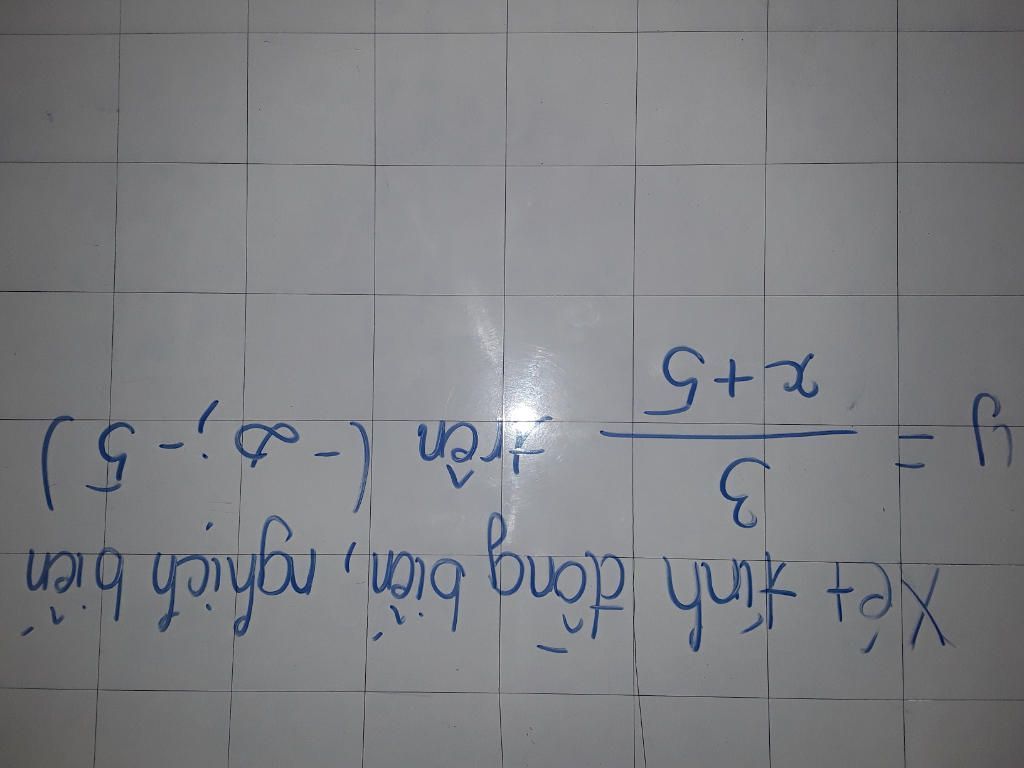 Xét tính đồng biến, nghịch biến
y = 3/(x+5) trên (-∞; -5)